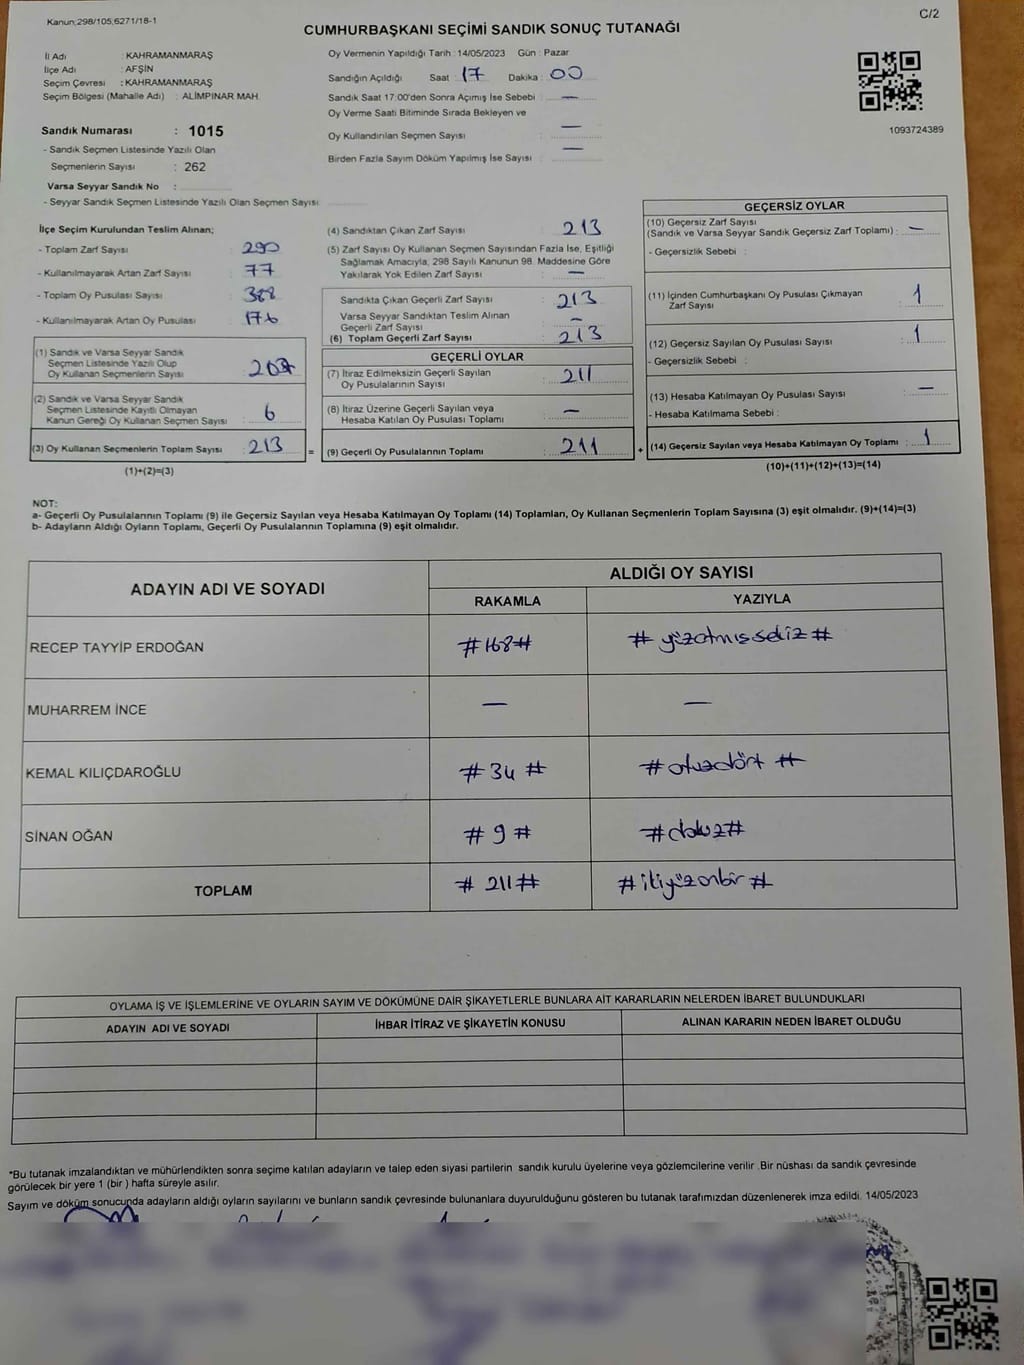 Kanun;298/105,6271/18-1
C/2
CUMHURBAŞKANI SEÇİMİ SANDIK SONUÇ TUTANAĞI
İl Adı : KAHRAMANMARAŞ
İlçe Adı : AFŞİN
Seçim Çevresi : KAHRAMANMARAŞ
Seçim Bölgesi (Mahalle Adı) : ALİMPINAR MAH.
Sandık Numarası : 1015
- Sandık Seçmen Listesinde Yazılı Olan
Seçmenlerin Sayısı : 262
Varsa Seyyar Sandık No :
- Seyyar Sandık Seçmen Listesinde Yazılı Olan Seçmen Sayısı
Oy Vermenin Yapıldığı Tarih : 14/05/2023 Gün : Pazar
Sandığın Açıldığı Saat : 17 Dakika : 00
Sandık Saat 17:00'den Sonra Açımış İse Sebebi : —
Oy Verme Saati Bitiminde Sırada Bekleyen ve
Oy Kullandırılan Seçmen Sayısı : —
Birden Fazla Sayım Döküm Yapılmış İse Sayısı : —
1093724389
İlçe Seçim Kurulundan Teslim Alınan;
- Toplam Zarf Sayısı : 290
- Kullanılmayarak Artan Zarf Sayısı : 77
- Toplam Oy Pusulası Sayısı : 388
- Kullanılmayarak Artan Oy Pusulası : 176
(1) Sandık ve Varsa Seyyar Sandık
Seçmen Listesinde Yazılı Olup
Oy Kullanan Seçmenlerin Sayısı : 207
(2) Sandık ve Varsa Seyyar Sandık
Seçmen Listesinde Kayıtlı Olmayan
Kanun Gereği Oy Kullanan Seçmen Sayısı : 6
(3) Oy Kullanan Seçmenlerin Toplam Sayısı : 213
(1)+(2)=(3)
(4) Sandıktan Çıkan Zarf Sayısı : 213
(5) Zarf Sayısı Oy Kullanan Seçmen Sayısından Fazla İse, Eşitliği
Sağlamak Amacıyla, 298 Sayılı Kanunun 98. Maddesine Göre
Yakılarak Yok Edilen Zarf Sayısı : —
Sandıkta Çıkan Geçerli Zarf Sayısı : 213
Varsa Seyyar Sandıktan Teslim Alınan
Geçerli Zarf Sayısı : —
(6) Toplam Geçerli Zarf Sayısı : 213
GEÇERLİ OYLAR
(7) İtiraz Edilmeksizin Geçerli Sayılan
Oy Pusulalarının Sayısı : 211
(8) İtiraz Üzerine Geçerli Sayılan veya
Hesaba Katılan Oy Pusulası Toplamı : —
= (9) Geçerli Oy Pusulalarının Toplamı : 211 +
GEÇERSİZ OYLAR
(10) Geçersiz Zarf Sayısı
(Sandık ve Varsa Seyyar Sandık Geçersiz Zarf Toplamı) : —
- Geçersizlik Sebebi :
(11) İçinden Cumhurbaşkanı Oy Pusulası Çıkmayan
Zarf Sayısı : 1
(12) Geçersiz Sayılan Oy Pusulası Sayısı : 1
- Geçersizlik Sebebi :
(13) Hesaba Katılmayan Oy Pusulası Sayısı : —
- Hesaba Katılmama Sebebi :
(14) Geçersiz Sayılan veya Hesaba Katılmayan Oy Toplamı : 1
(10)+(11)+(12)+(13)=(14)
NOT:
a- Geçerli Oy Pusulalarının Toplamı (9) ile Geçersiz Sayılan veya Hesaba Katılmayan Oy Toplamı (14) Toplamları, Oy Kullanan Seçmenlerin Toplam Sayısına (3) eşit olmalıdır. (9)+(14)=(3)
b- Adayların Aldığı Oyların Toplamı, Geçerli Oy Pusulalarının Toplamına (9) eşit olmalıdır.
ADAYIN ADI VE SOYADI ALDIĞI OY SAYISI
RAKAMLA YAZIYLA
RECEP TAYYİP ERDOĞAN #168# #yüzatmışsekiz#
MUHARREM İNCE — —
KEMAL KILIÇDAROĞLU #34# #otuzdört#
SİNAN OĞAN #9# #dokuz#
TOPLAM #211# #ikiyüzonbir#
OYLAMA İŞ VE İŞLEMLERİNE VE OYLARIN SAYIM VE DÖKÜMÜNE DAİR ŞİKAYETLERLE BUNLARA AİT KARARLARIN NELERDEN İBARET BULUNDUKLARI
ADAYIN ADI VE SOYADI İHBAR İTİRAZ VE ŞİKAYETİN KONUSU ALINAN KARARIN NEDEN İBARET OLDUĞU
*Bu tutanak imzalandıktan ve mühürlendikten sonra seçime katılan adayların ve talep eden siyasi partilerin sandık kurulu üyelerine veya gözlemcilerine verilir .Bir nüshası da sandık çevresinde
görülecek bir yere 1 (bir ) hafta süreyle asılır.
Sayım ve döküm sonucunda adayların aldığı oyların sayılarını ve bunların sandık çevresinde bulunanlara duyurulduğunu gösteren bu tutanak tarafımızdan düzenlenerek imza edildi. 14/05/2023